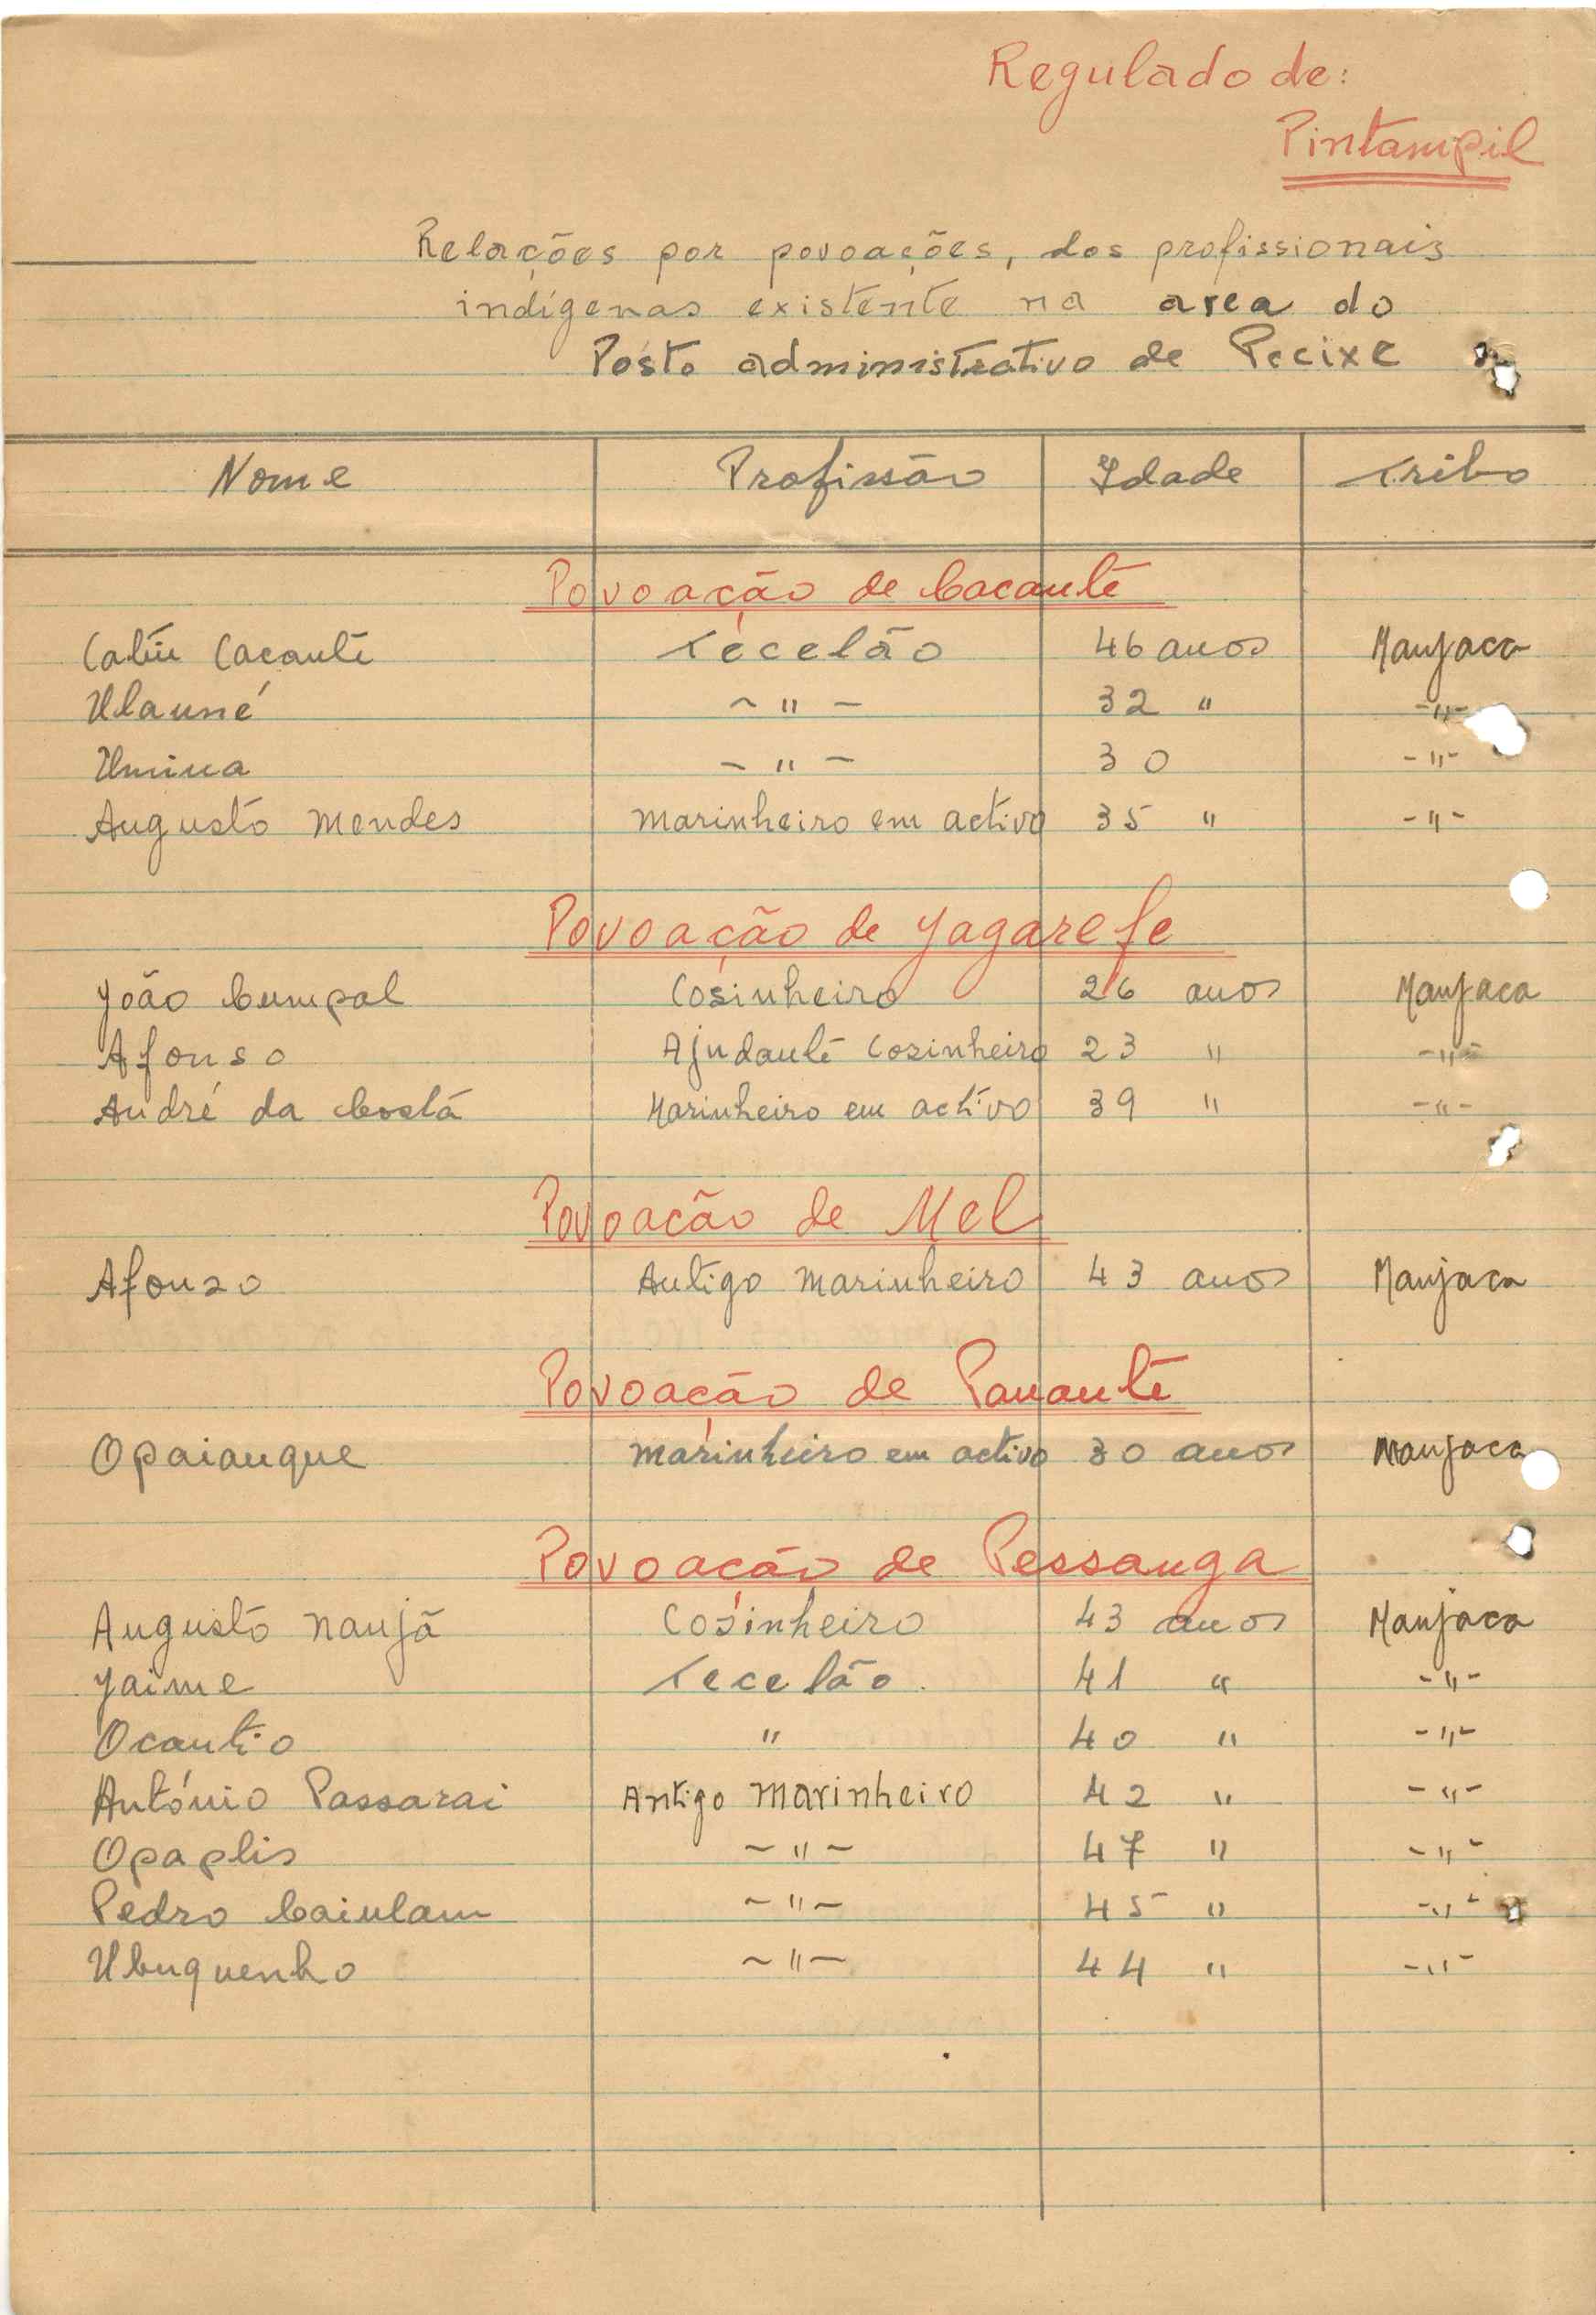 Regulado de:
Pintampil
Relações por povoações, dos profissionais
indígenas existente na area do
Posto administrativo de Pecixe
Nome Profissão Idade Tribo
Povoação de Cacante
Cacante Tecelão 46 anos Manjaca
Ulauné ~ " - 32 " -"-
Umina - " - 30 -"-
Augusto Mendes Marinheiro em activo 35 " -"-
Povoação de Jagarefe
João Cumpal Cosinheiro 26 anos Manjaca
Afonso Ajudante Cosinheiro 23 " -"-
André da Costa Marinheiro em activo 39 " -"-
Povoação de Mel
Afonso Antigo Marinheiro 43 anos Manjaca
Povoação de Panante
Opaianque Marinheiro em activo 30 anos Manjaca
Povoação de Pessanga
Augusto Nanjã Cosinheiro 43 anos Manjaca
Jaime Tecelão. 41 " -"-
Ocantio " 40 " -"-
António Passarai Antigo Marinheiro 42 " -"-
Opaplis ~ " ~ 47 " -"-
Pedro Caiulam ~ " ~ 45 " -"-
Ubuquenho ~ " ~ 44 " -"-